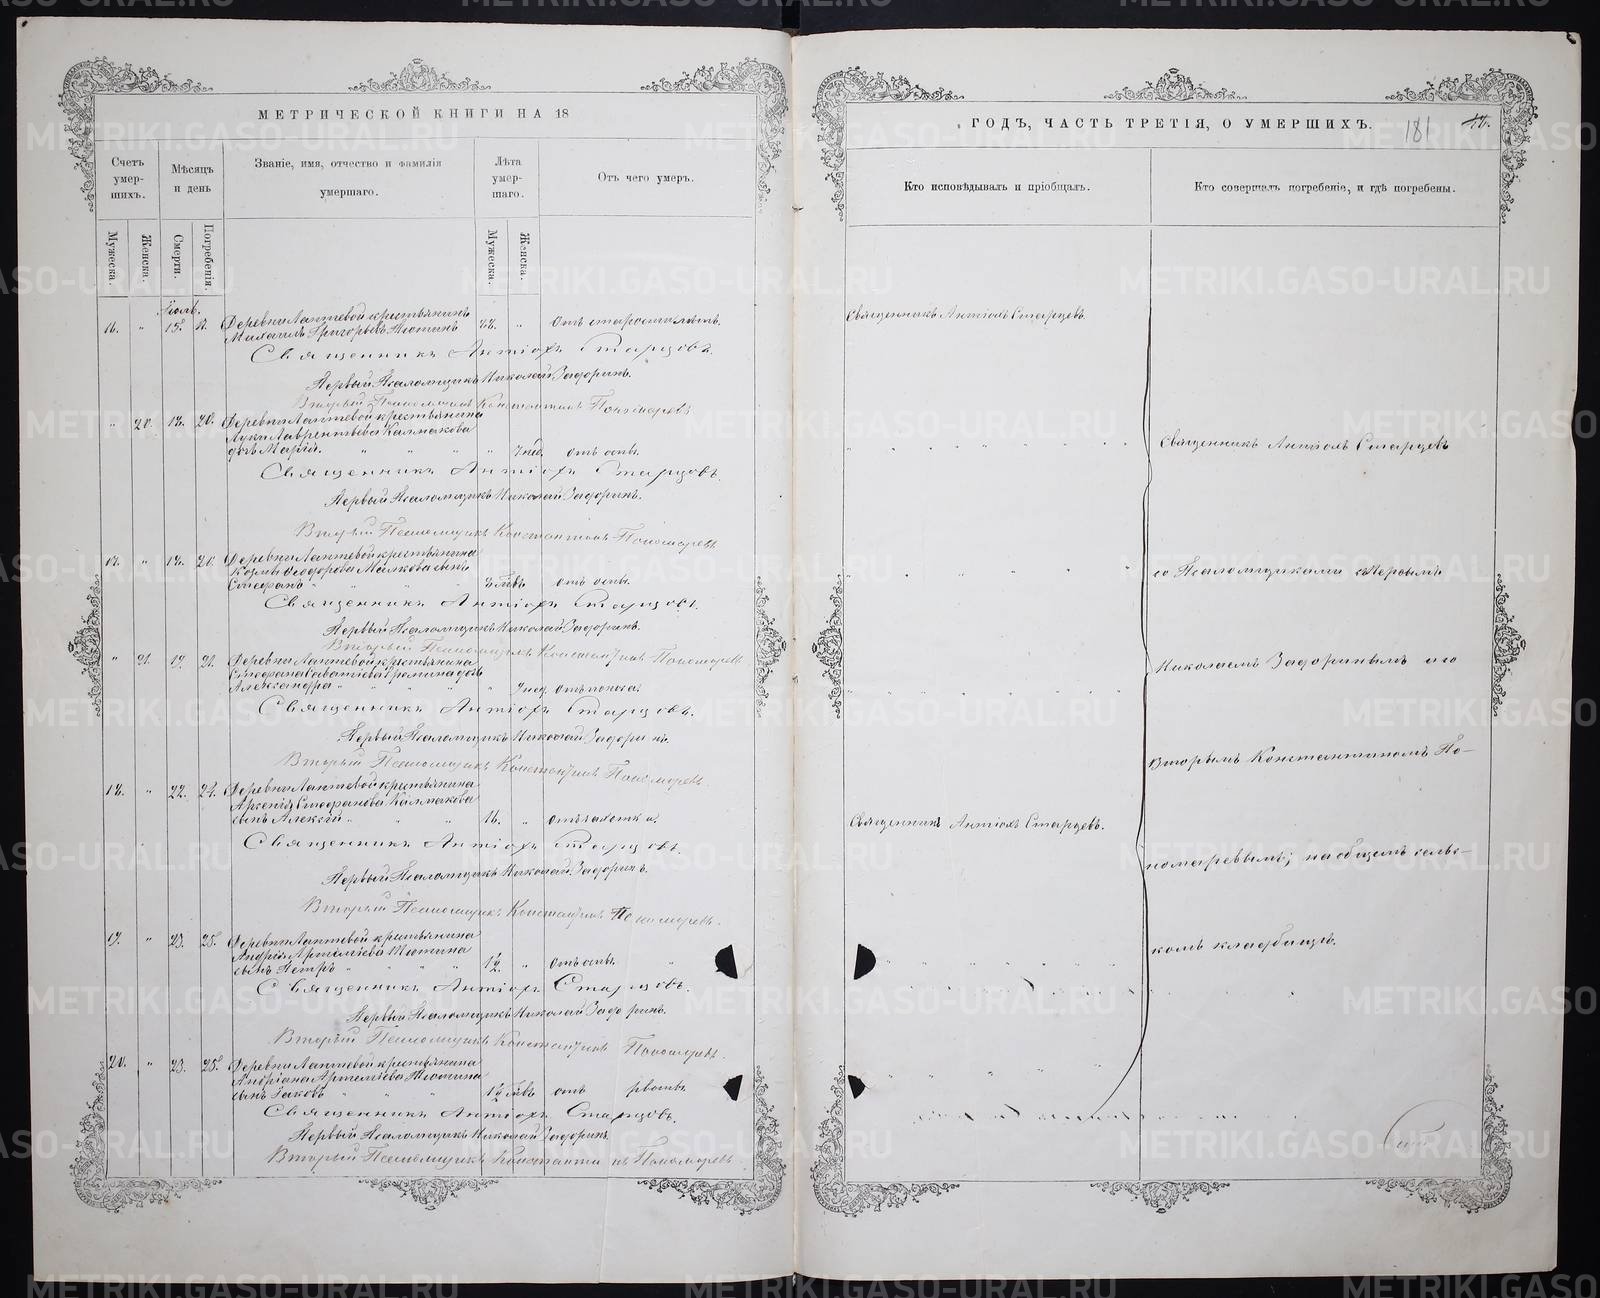 МЕТРИЧЕСКОЙ КНИГИ НА 18
Счетъ умер-шихъ.
Мѣсяцъ и день
Званіе, имя, отчество и фамилія умершаго.
Лѣта умер-шаго.
Отъ чего умеръ.
Мужеска.
Женска.
Смерти.
Погребенія.
Мужеска.
Женска.
Іюль.
16. " 15. Деревни Лаптевой крестьянинъ
Михаилъ Григорьевъ Тютинъ " Отъ старости лѣтъ.
Священникъ Антіохъ Старцовъ.
Первый Псаломщикъ Николай Задоринъ.
Вторый Псаломщикъ Константинъ Пономаревъ
" 20. 18. 20. Деревни Лаптевой крестьянина
Луки Лаврентьева Калмакова
дочь Марія. " " " " 7 нед. отъ оспы.
Священникъ Антіохъ Старцовъ.
Первый Псаломщикъ Николай Задоринъ.
Вторый Псаломщикъ Константинъ Пономаревъ
17. " 18. 20. Деревни Лаптевой крестьянина
Козмы Ѳеодорова Малкова сынъ
Стефанъ " отъ оспы.
Священникъ Антіохъ Старцовъ.
Первый Псаломщикъ Николай Задоринъ.
Вторый Псаломщикъ Константинъ Пономаревъ
" 21. 19. 21. Деревни Лаптевой крестьянина
Стефана Саватіева дочь
Александра " " " " 7 нед. отъ поноса.
Священникъ Антіохъ Старцовъ.
Первый Псаломщикъ Николай Задоринъ.
Вторый Псаломщикъ Константинъ Пономаревъ
18. " 22. 24. Деревни Лаптевой крестьянина
Арсенія Стефанова Калмакова
сынъ Алексій " " " 16. " отъ чахотки.
Священникъ Антіохъ Старцовъ.
Первый Псаломщикъ Николай Задоринъ.
Вторый Псаломщикъ Константинъ Пономаревъ.
19. " 23. 25. Деревни Лаптевой крестьянина
Андрія Артеміева Тютина
сынъ Петръ " " " " 1½ " отъ оспы.
Священникъ Антіохъ Старцовъ.
Первый Псаломщикъ Николай Задоринъ.
Вторый Псаломщикъ Константинъ Пономаревъ.
20. " 23. 25. Деревни Лаптевой крестьянина
Андріана Артеміева Тютина
сынъ Іаковъ " " " 1½ отъ рвоты.
Священникъ Антіохъ Старцовъ.
Первый Псаломщикъ Николай Задоринъ.
Вторый Псаломщикъ Константинъ Пономаревъ
ГОДЪ, ЧАСТЬ ТРЕТІЯ, О УМЕРШИХЪ.
181
Кто исповѣдывалъ и пріобщалъ.
Кто совершалъ погребеніе, и гдѣ погребены.
Священникъ Антіохъ Старцевъ.
Священникъ Антіохъ Старцевъ
со Псаломщиками Первымъ
Николаемъ Задоринымъ и со
Вторымъ Константиномъ По-
Священникъ Антіохъ Старцевъ.
номаревымъ; на общемъ сельс-
комъ кладбищѣ.
METRIKI.GASO-URAL.RU